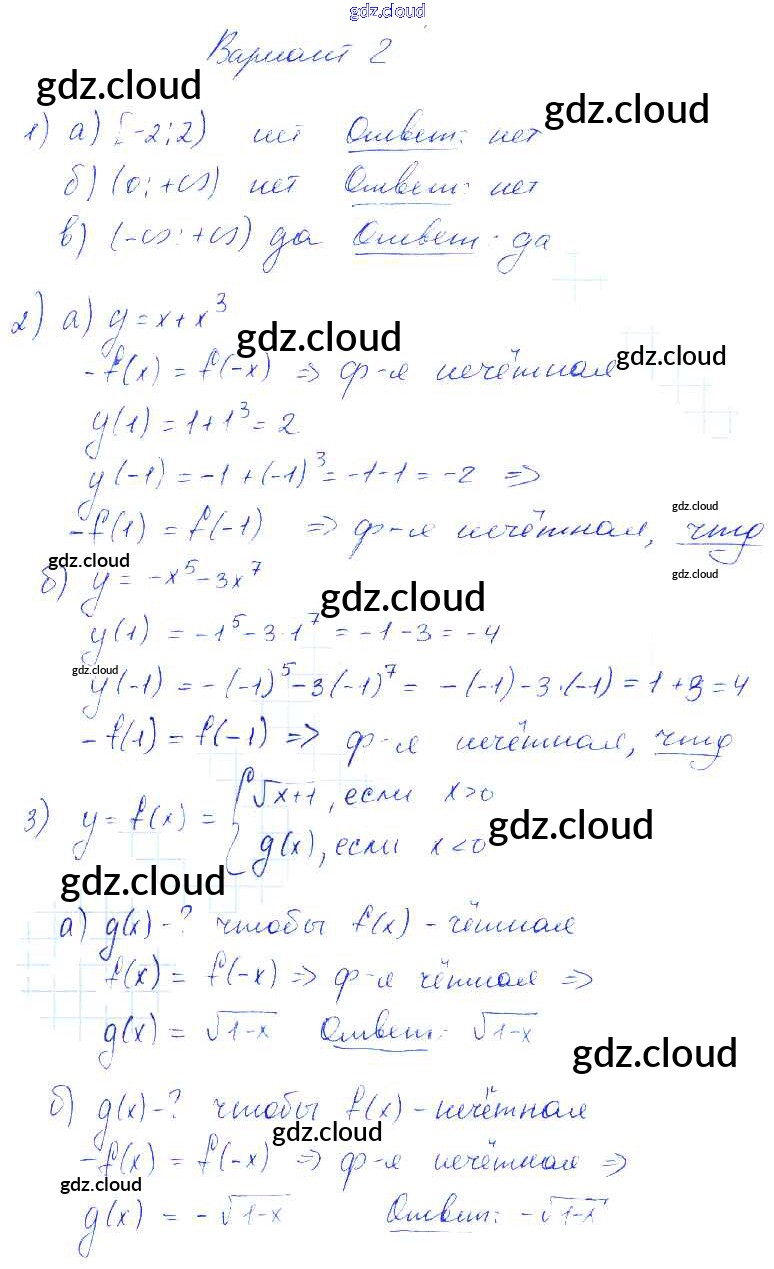 gdz.cloud
Вариант 2
gdz.cloud
gdz.cloud
1) а) [-2; 2) нет Ответ: нет
б) (0; +∞) нет Ответ: нет
в) (-∞; +∞) да Ответ: да
2) а) y = x + x³
gdz.cloud
gdz.cloud
-f(x) = f(-x) => ф-я нечётная
y(1) = 1 + 1³ = 2
y(-1) = -1 + (-1)³ = -1 - 1 = -2 =>
gdz.cloud
-f(1) = f(-1) => ф-я нечётная, чтд
gdz.cloud
gdz.cloud
б) y = -x⁵ - 3x⁷
gdz.cloud
y(1) = -1⁵ - 3·1⁷ = -1 - 3 = -4
gdz.cloud
y(-1) = -(-1)⁵ - 3(-1)⁷ = -(-1) - 3·(-1) = 1 + 3 = 4
-f(1) = f(-1) => ф-я нечётная, чтд
3) y = f(x) = { √x+1, если x>0
g(x), если x<0
gdz.cloud
gdz.cloud
а) g(x) - ? чтобы f(x) - чётная
f(x) = f(-x) => ф-я чётная =>
g(x) = √1-x Ответ: √1-x
gdz.cloud
б) g(x) - ? чтобы f(x) - нечётная
gdz.cloud
-f(x) = f(-x) => ф-я нечётная =>
gdz.cloud
g(x) = -√1-x Ответ: -√1-x